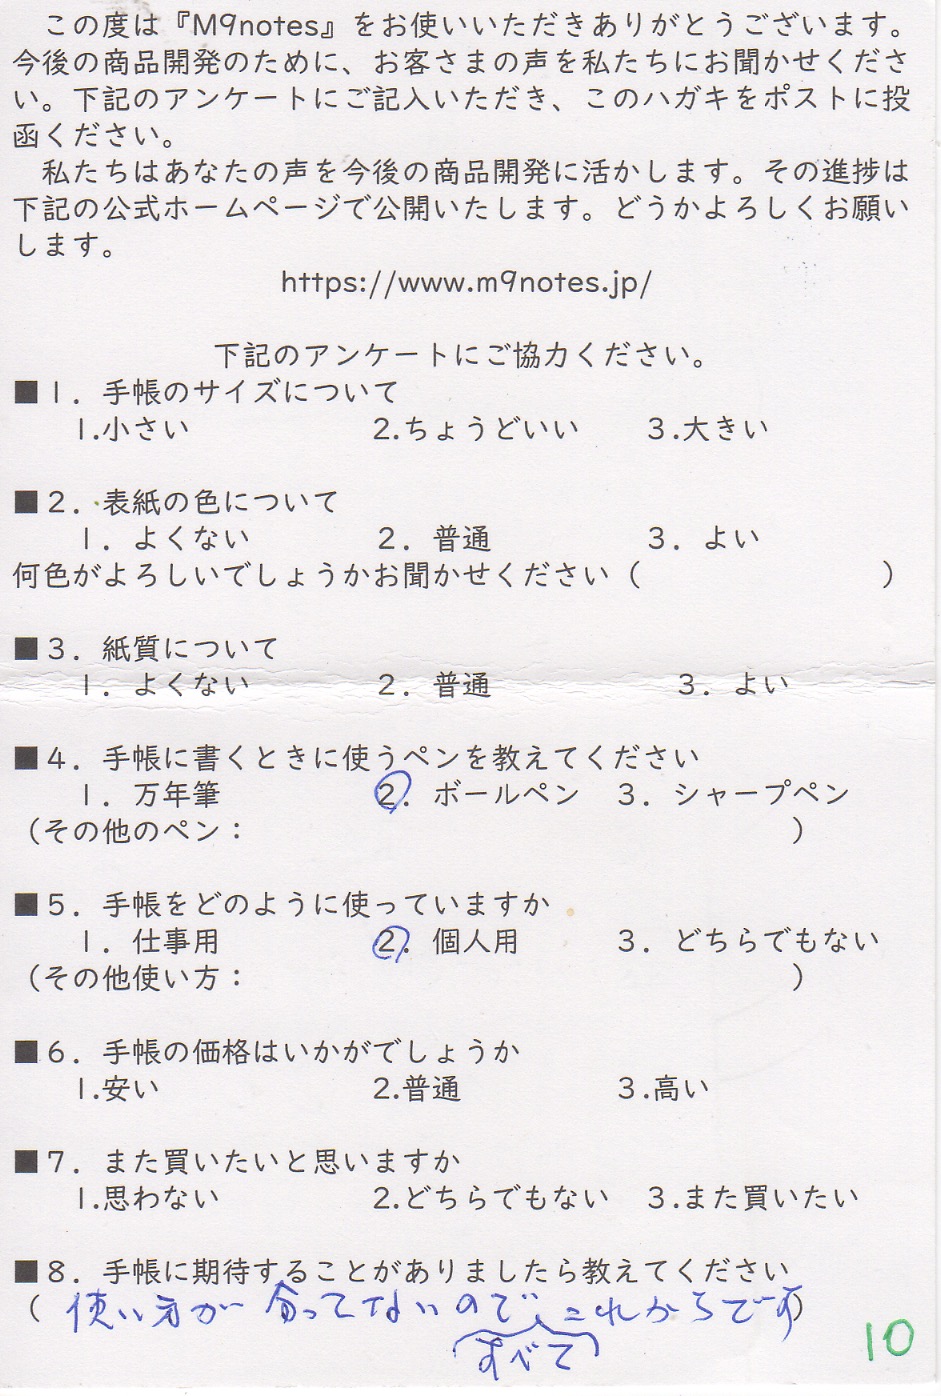 この度は『M9notes』をお使いいただきありがとうございます。
今後の商品開発のために、お客さまの声を私たちにお聞かせくださ
い。下記のアンケートにご記入いただき、このハガキをポストに投
函ください。
私たちはあなたの声を今後の商品開発に活かします。その進捗は
下記の公式ホームページで公開いたします。どうかよろしくお願い
します。
https://www.m9notes.jp/
下記のアンケートにご協力ください。
■1. 手帳のサイズについて
1.小さい 2.ちょうどいい 3.大きい
■2. 表紙の色について
1. よくない 2. 普通 3. よい
何色がよろしいでしょうかお聞かせください（ ）
■3. 紙質について
1. よくない 2. 普通 3. よい
■4. 手帳に書くときに使うペンを教えてください
1. 万年筆 2. ボールペン 3. シャープペン
（その他のペン： ）
■5. 手帳をどのように使っていますか
1. 仕事用 2. 個人用 3. どちらでもない
（その他使い方： ）
■6. 手帳の価格はいかがでしょうか
1.安い 2.普通 3.高い
■7. また買いたいと思いますか
1.思わない 2.どちらでもない 3.また買いたい
■8. 手帳に期待することがありましたら教えてください
（ 使い方が 合ってないので、これからです）
すべて
10